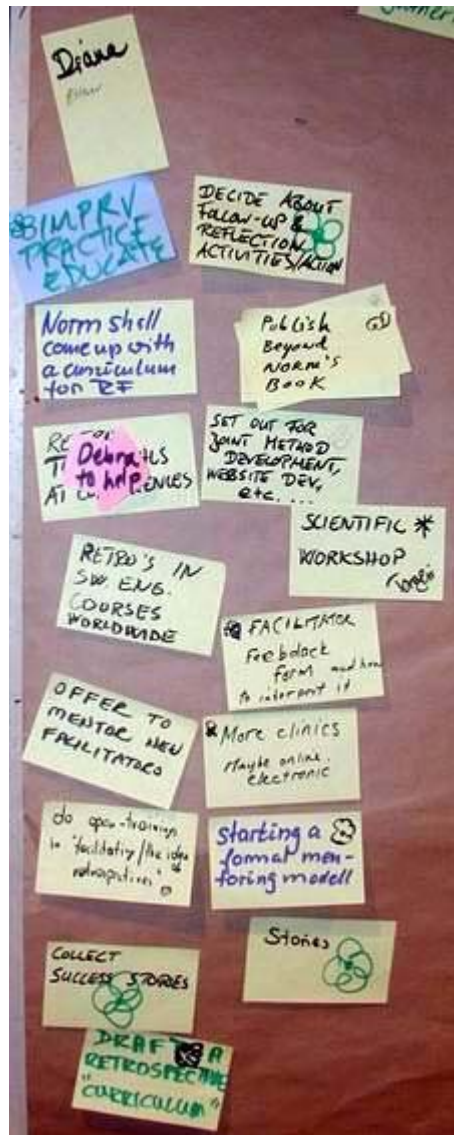 Diana
IMPRV
PRACTICE
EDUCATE
DECIDE ABOUT
FOLLOW-UP &
REFLECTION
ACTIVITIES/ACTION
Norm shell
come up with
a curriculum
for RF
Publish
Beyond
NORM'S
BOOK
Debra
to help
AT
SET OUT FOR
JOINT METHOD
DEVELOPMENT,
WEBSITE DEV,
etc. ...
SCIENTIFIC *
WORKSHOP
RETRO'S IN
SW ENG.
COURSES
WORLDWIDE
FACILITATOR
Feebdack
form and how
to interpret it
OFFER TO
MENTOR NEW
FACILITATORS
More clinics
Maybe online.
electronic
do open-training
in "facilitating / the idea of
retrospectives"
starting a
formal men-
toring modell
COLLECT
SUCCESS STORIES
Stories
DRAFT A
RETROSPECTIVE
"CURRICULUM"